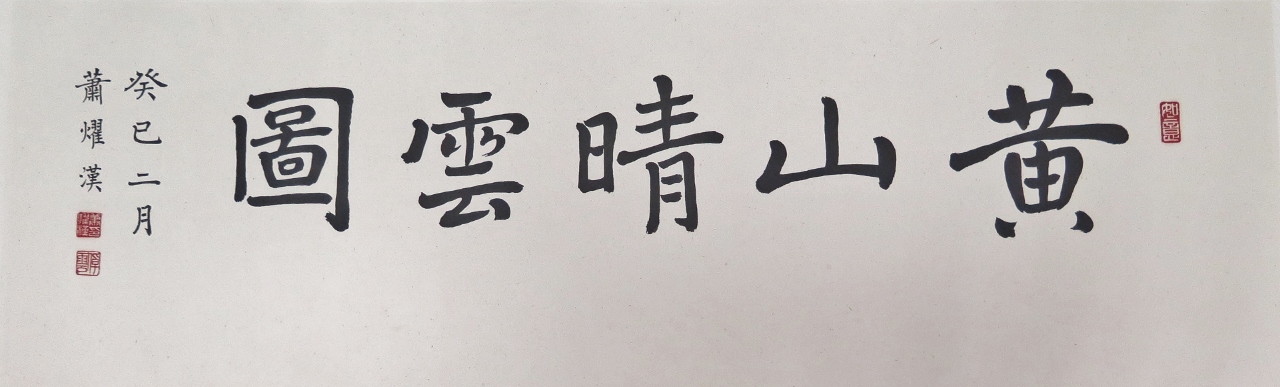 黄山晴雲圖
癸巳二月
蕭燿漢